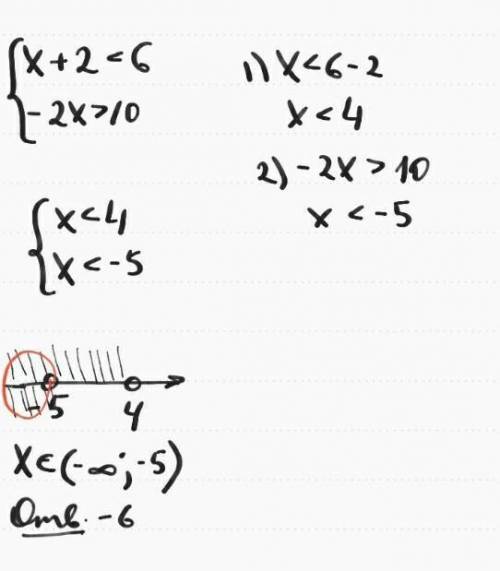 {x+2<6
-2x>10
1) x<6-2
x<4
2) -2x>10
x<-5
{x<4
x<-5
-5 4
x∈(-∞;-5)
Отв. -6